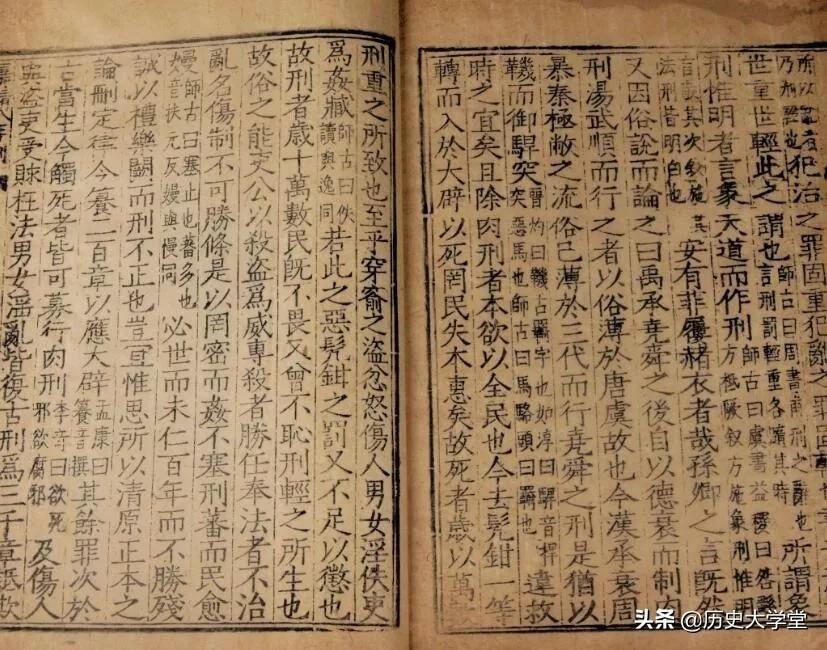 犯治之罪固重犯亂之罪固
世重世輕此之謂也師古曰周書甫刑之辭也言刑罰輕重各隨其時所謂象
刑惟明者言象天道而作刑師古曰虞書益稷曰咎繇方祗厥敘方施象刑惟明
言敬其次敘施其法刑皆明白也安有菲屨赭衣者哉孫卿之言既然
又因俗說而論之曰禹承堯舜之後自以德衰而制
刑湯武順而行之者以俗薄於唐虞故也今漢承衰周
暴秦極敝之流俗已薄於三代而行堯舜之刑是猶以
鞿而御駻突晉灼曰鞿古羈字也如淳曰駻音捍突惡馬也師古曰馬絡頭曰羈也違救
時之宜矣且除肉刑者本欲以全民也今去髡鉗一等
轉而入於大辟以死罔民失本惠矣故死者歲以萬
刑重之所致也至乎穿窬之盜忿怒傷人男女淫佚吏
爲姦臧師古曰佚讀與逸同若此之惡髡鉗之罰又不足以懲也
故刑者歲十萬數民既不畏又曾不恥刑輕之所生也
故俗之能吏公以殺盜爲威專殺者勝任奉法者不治
亂名傷制不可勝條是以罔密而姦不塞刑蕃而民愈
嫚師古曰塞止也蕃多也音扶元反嫚與慢同必世而未仁百年而不勝殘
誠以禮樂闕而刑不正也豈宜惟思所以清原正本之
論刪定律令籑二百章以應大辟孟康曰籑音撰其餘罪次於
古當生今觸死者皆可募行肉刑李奇曰欲死邪欲腐邪及傷人
與盜吏受賕枉法男女淫亂皆復古刑爲三千章詆欺
头条 @历史大学堂